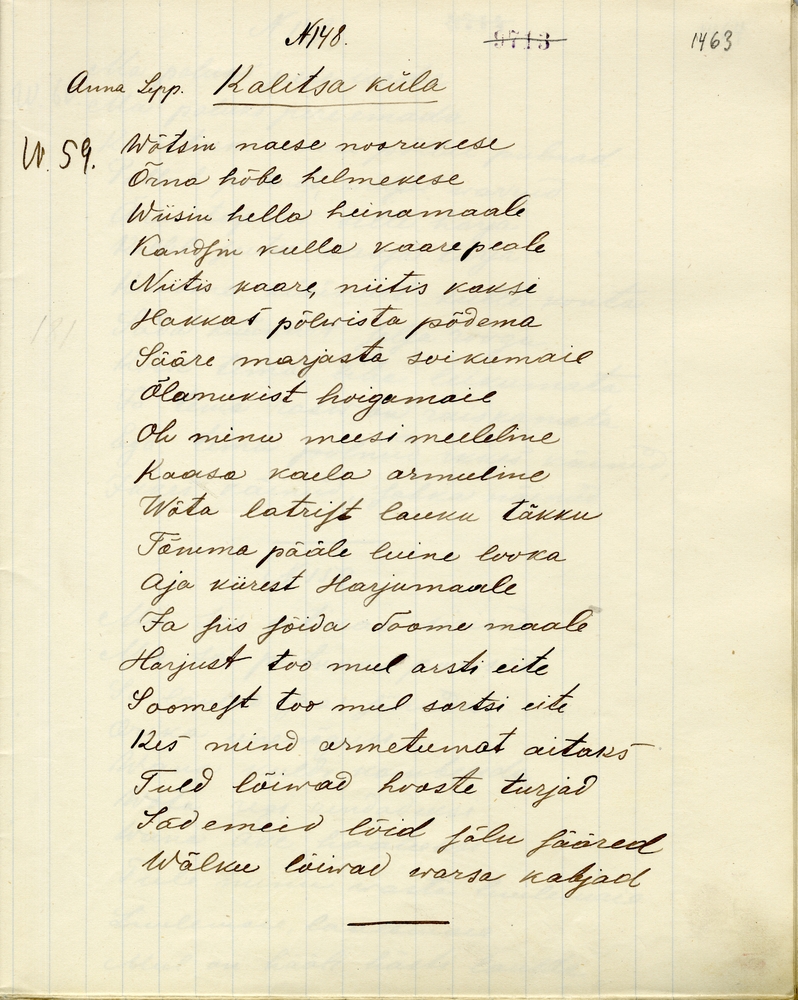 № 148.
9713
1463
Anna Lepp. Kalitsa küla
W. 59.
Wõtsin naese noorukese
Õrna hõbe helmekese
Wiisin hella heinamaale
Kandsin kulla kaare peale
Niitis kaare, niitis kaksi
Hakkas põlwista põdema
Sääre marjasta soikumaie
Õlanukist hoigamaie
Oh minu meesi meeleline
Kaasa kaela armuline
Wõta latrist lauku täkku
Tõmma pääle luine looka
Aja kiirest Harjumaale
Ja siis sõida Soome maale
Harjust too mul arsti eite
Soomest too mul sortsi eite
Kes mind armetumat aitaks
Tuld lõiwad hooste turjad
Sädemeid lõid sälu sääred
Wälku lõiwad warsa kabjad